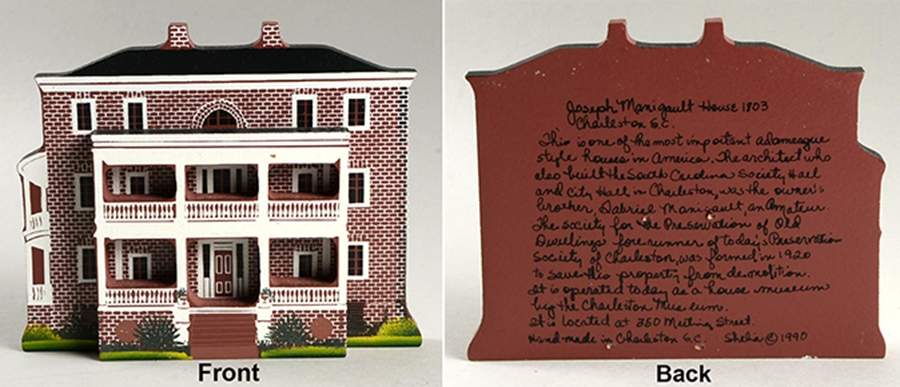 Joseph Manigault House 1803
Charleston S.C.
This is one of the most important adamesque
style houses in America. The architect who
also built the South Carolina Society Hall
and City Hall in Charleston, was the owner's
brother, Gabriel Manigault, an Amateur.
The society for the Preservation of Old
Dwellings forerunner of today's Preservation
Society of Charleston, was formed in 1920
to save this property from demolition.
It is operated today as a house museum
by the Charleston Museum.
It is located at 350 Meeting Street.
Hand-made in Charleston S.C. Shelia © 1990
Front
Back